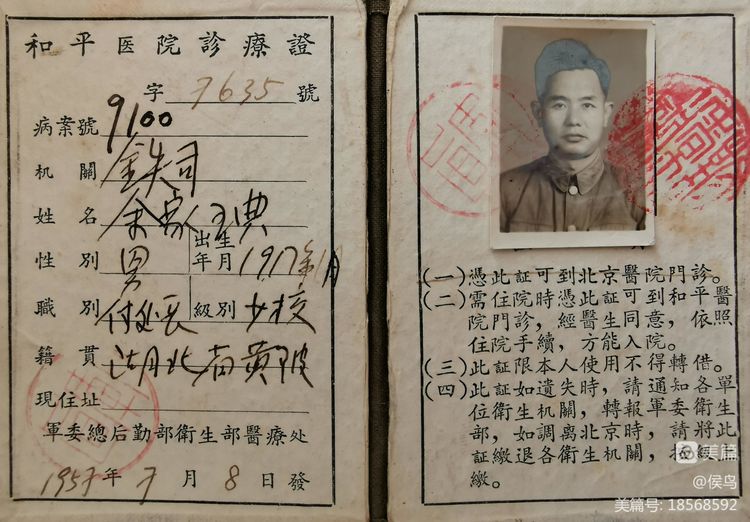 和平医院診療證
字 7635 號
病案號 9100
机關 金失司
姓名
性別 男 出生年月 1917年1月
職別 付处長 級別 少校
籍貫 湖北省黄陂
現住址
軍委總后勤部衛生部醫療处
1957年7月8日發
(一)憑此証可到北京醫院門診。
(二)需住院時憑此証可到和平醫
院門診，經醫生同意，依照
住院手續，方能入院。
(三)此証限本人使用不得轉借。
(四)此証如遺失時，請通知各單
位衛生机關，轉報軍委衛生
部，如調离北京時，請將此
証繳退各衛生机關，
繳。
美篇
@侯鸟
美篇号: 18568592